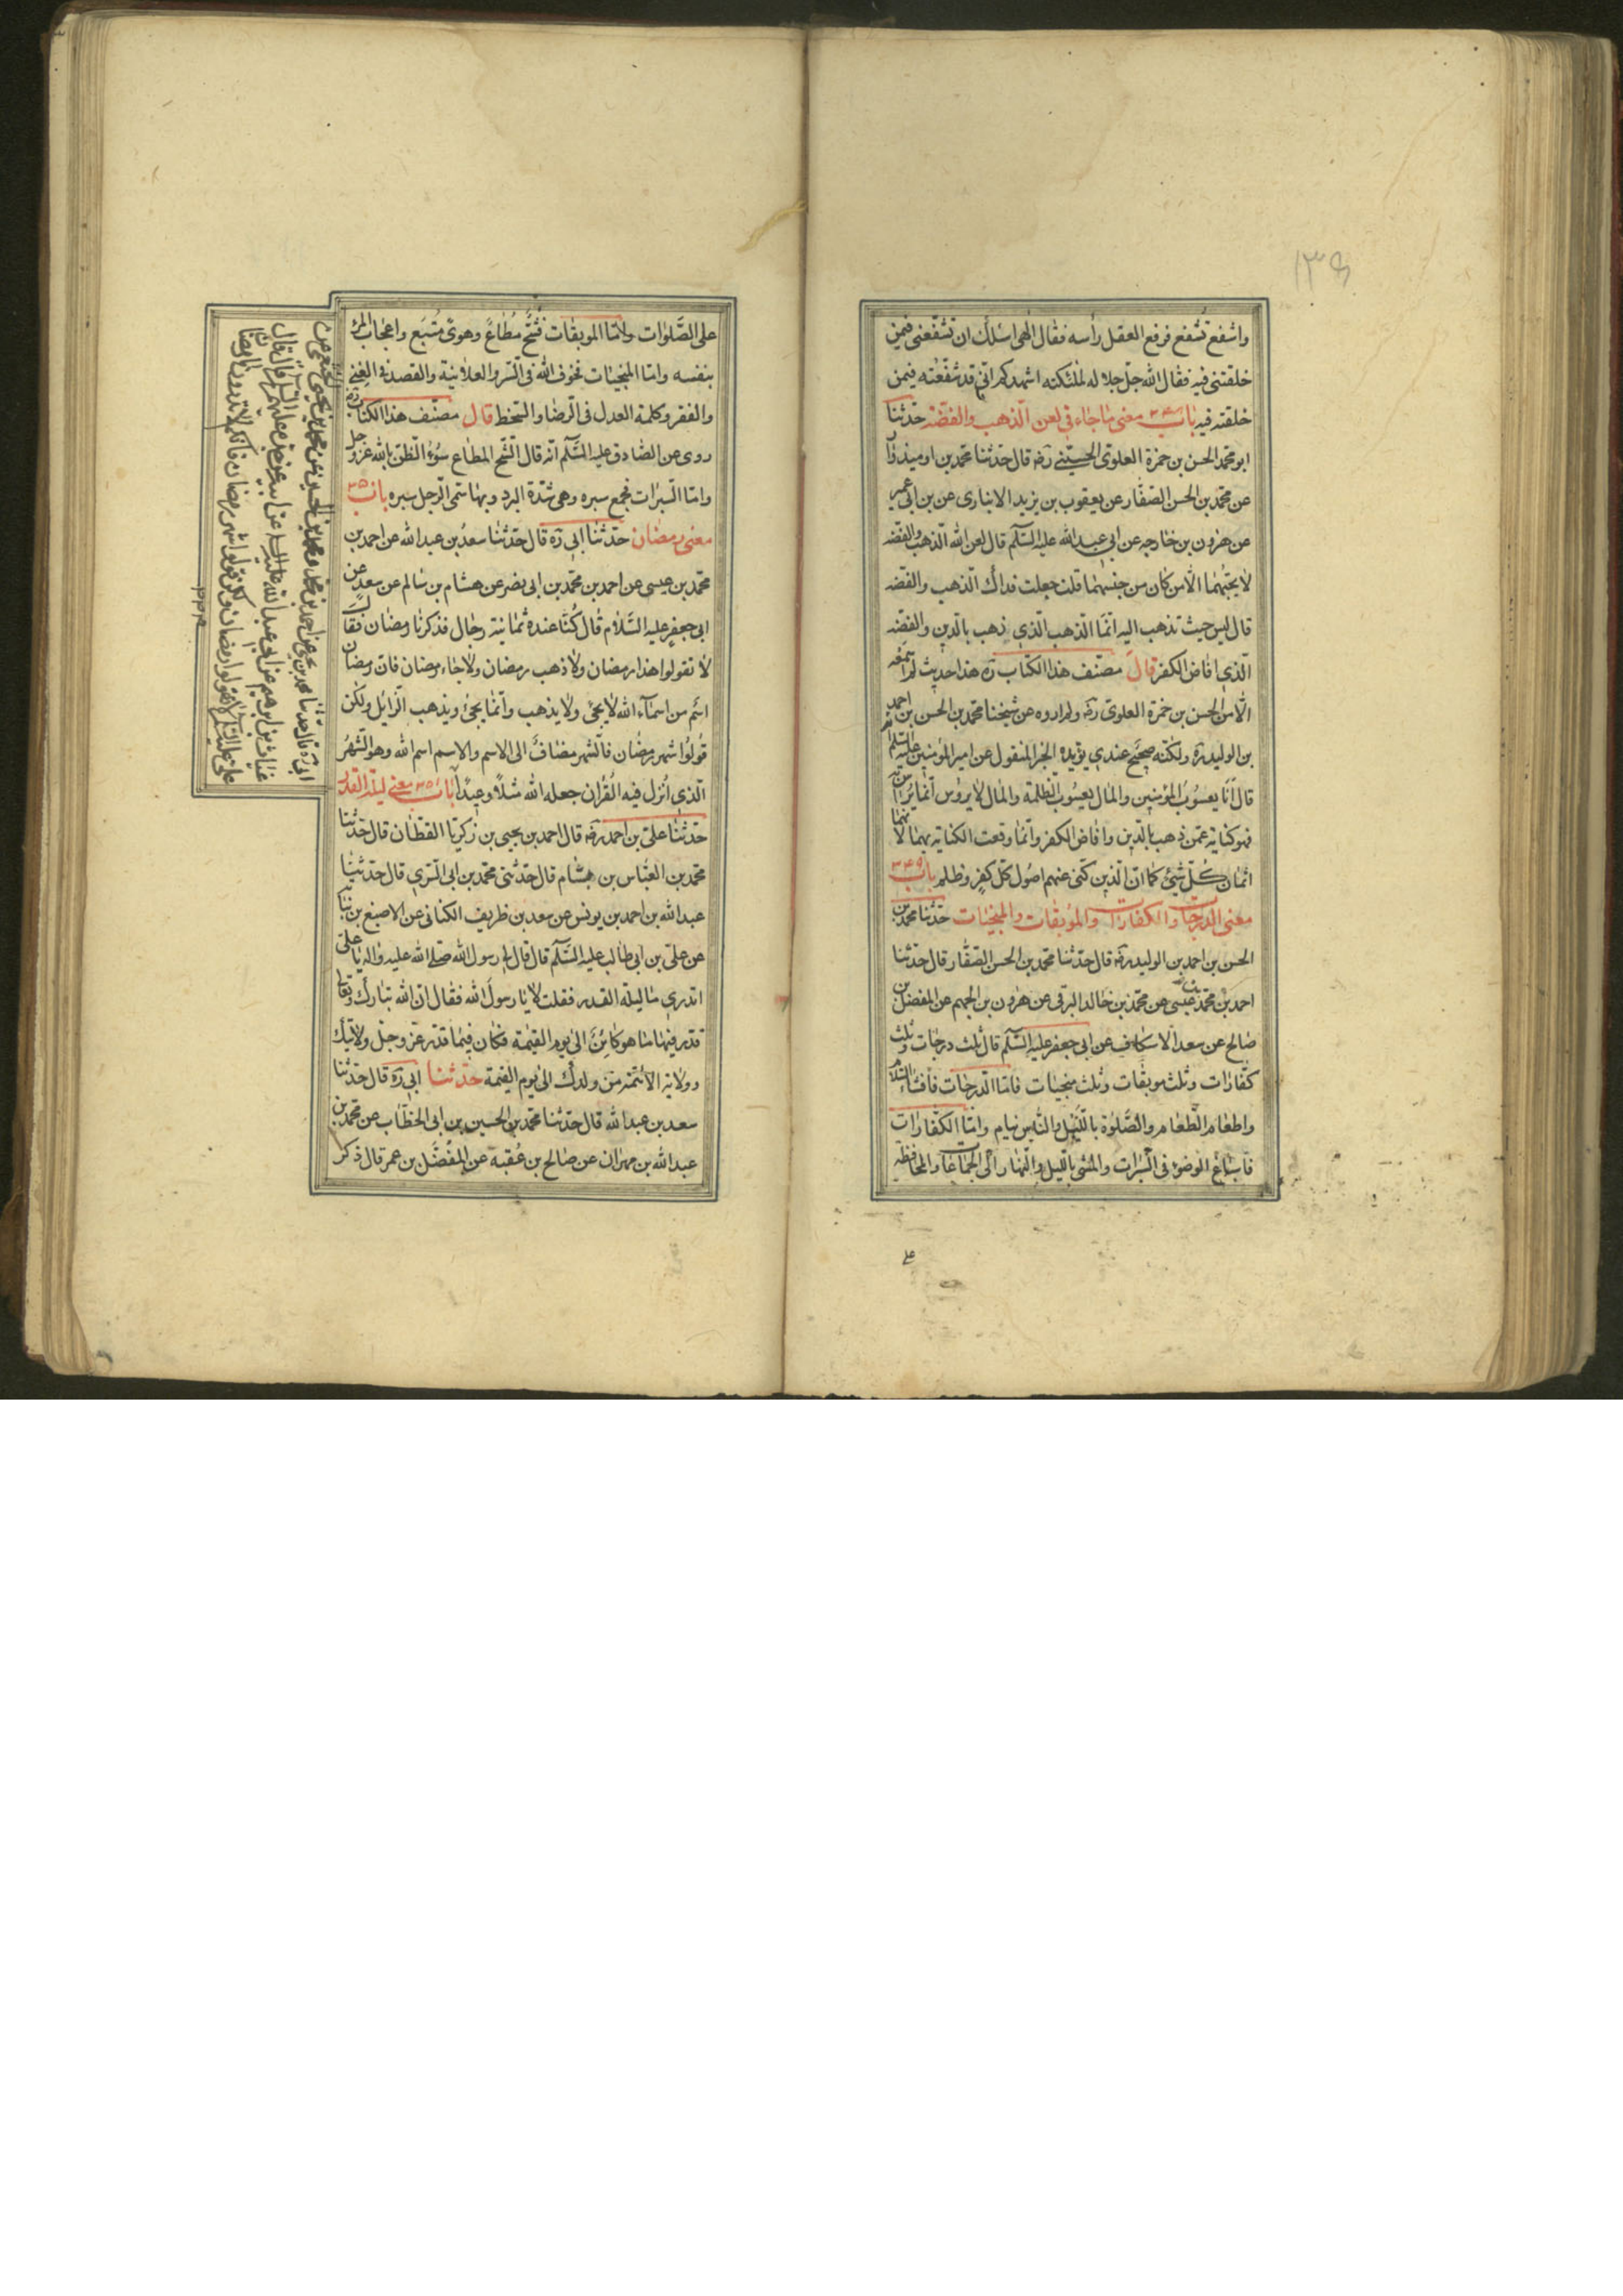 ١٣٩
واشفع تشفع فرفع العقل رأسه فقال الهى اسئلك ان تشفعنى فيمن
خلقتنى فيه فقال الله جل جلاله لملئكته اشهدكم انى قد شفعته فيمن
خلقته فيه باب معنى ما جاء فى لعن الذهب والفضة حدثنا
ابو محمد الحسن بن حمزة العلوى الحسينى رضه قال حدثنا محمد بن اوميذوار
عن محمد بن الحسن الصفار عن يعقوب بن يزيد الانبارى عن بن ابى عمير
عن هرون بن خارجه عن ابى عبد الله عليه السلم قال لعن الله الذهب والفضه
لا يحبهما الا من كان من جنسهما قلت جعلت فداك الذهب والفضه
قال ليس حيث تذهب اليه انما الذهب الذى ذهب بالدين والفضه
الذى افاض الكفر قال مصنف هذا الكتاب ره هذا حديث لم اسمعه
الا من الحسن بن حمزة العلوى رضه ولم اروه عن شيخنا محمد بن الحسن بن احمد
بن الوليد ره ولكنه صحيح عندى يؤيده الخبر المنقول عن امير المؤمنين عليه السلم انه
قال انا يعسوب المؤمنين والمال يعسوب الظلمة والمال لا يروس انما يراس به
فهو كناية عمن ذهب بالدين وافاض الكفر وانما وقعت الكناية بهما لانهما
اثمان كل شئ كما ان الذين كنى عنهم اصول كل كفر وظلم باب ٣٤٩
معنى الدرجات والكفارات والموبقات والمنجيات حدثنا محمد بن
الحسن بن احمد بن الوليد رضه قال حدثنا محمد بن الحسن الصفار قال حدثنا
احمد بن محمد بن عيسى عن محمد بن خالد البرقى عن هرون بن الجهم عن المفضل بن
صالح عن سعد الاسكاف عن ابى جعفر عليه السلم قال ثلث درجات وثلث
كفارات وثلث موبقات وثلث منجيات فاما الدرجات فافشاء السلام
واطعام الطعام والصلوة بالليل والناس نيام واما الكفارات
فاسباغ الوضوء فى السبرات والمشى بالليل والنهار الى الجماعات والمحافظه
على الصلوات واما الموبقات فشح مطاع وهوى متبع واعجاب المرء
بنفسه واما المنجيات فخوف الله فى السر والعلانية والقصد فى الغنى
والفقر وكلمة العدل فى الرضا والسخط قال مصنف هذا الكتاب رضه
روى عن الصادق عليه السلم انه قال الشح المطاع سوء الظن بالله عز وجل
واما السبرات فجمع سبره وهى شدة البرد وبها سمى الرجل سبره باب ٣٥٠
معنى رمضان حدثنا ابى ره قال حدثنا سعد بن عبد الله عن احمد بن
محمد بن عيسى عن احمد بن محمد بن ابى نصر عن هشام بن سالم عن سعد عن
ابى جعفر عليه السلام قال كنا عنده ثمانية رجال فذكرنا رمضان فقال
لا تقولوا هذا رمضان ولا ذهب رمضان ولا جاء رمضان فان رمضان
اسم من اسماء الله لا يجئ ولا يذهب وانما يجئ ويذهب الزايل ولكن
قولوا شهر رمضان فالشهر مضاف الى الاسم والاسم اسم الله وهو الشهر
الذى انزل فيه القران جعله الله مثلا وعيدا باب ٣٥١ معنى ليلة القدر
حدثنا على بن احمد رضه قال احمد بن يحيى بن زكريا القطان قال حدثنا
محمد بن العباس بن بسام قال حدثنى محمد بن ابى السرى قال حدثنا
عبد الله بن احمد بن يونس عن سعد بن ظريف الكنانى عن الاصبغ بن نباته
عن على بن ابى طالب عليه السلم قال قال لى رسول الله صلى الله عليه واله يا على
اتدرى ما ليلة القدر فقلت لا يا رسول الله فقال ان الله تبارك وتعالى
قدر فيها ما هو كائن الى يوم القيمة فكان فيما قدر عز وجل ولايتك
وولاية الائمة من ولدك الى يوم القيمة حدثنا ابى ره قال حدثنا
سعد بن عبد الله قال حدثنا محمد بن الحسين بن ابى الخطاب عن محمد بن
عبد الله بن مهران عن صالح بن عقبة عن المفضل بن عمر قال ذكر
ابى ره قال حدثنا محمد بن يحيى عن احمد بن محمد ومحمد بن الحسين عن محمد بن يحيى الخثعمى عن
غياث بن ابرهيم عن ابى عبد الله عليه السلم عن ابيه عن جده عليهم السلم قال قال
على عليه السلم لا تقولوا رمضان ولكن قولوا شهر رمضان فانكم لا تدرون ما رمضان